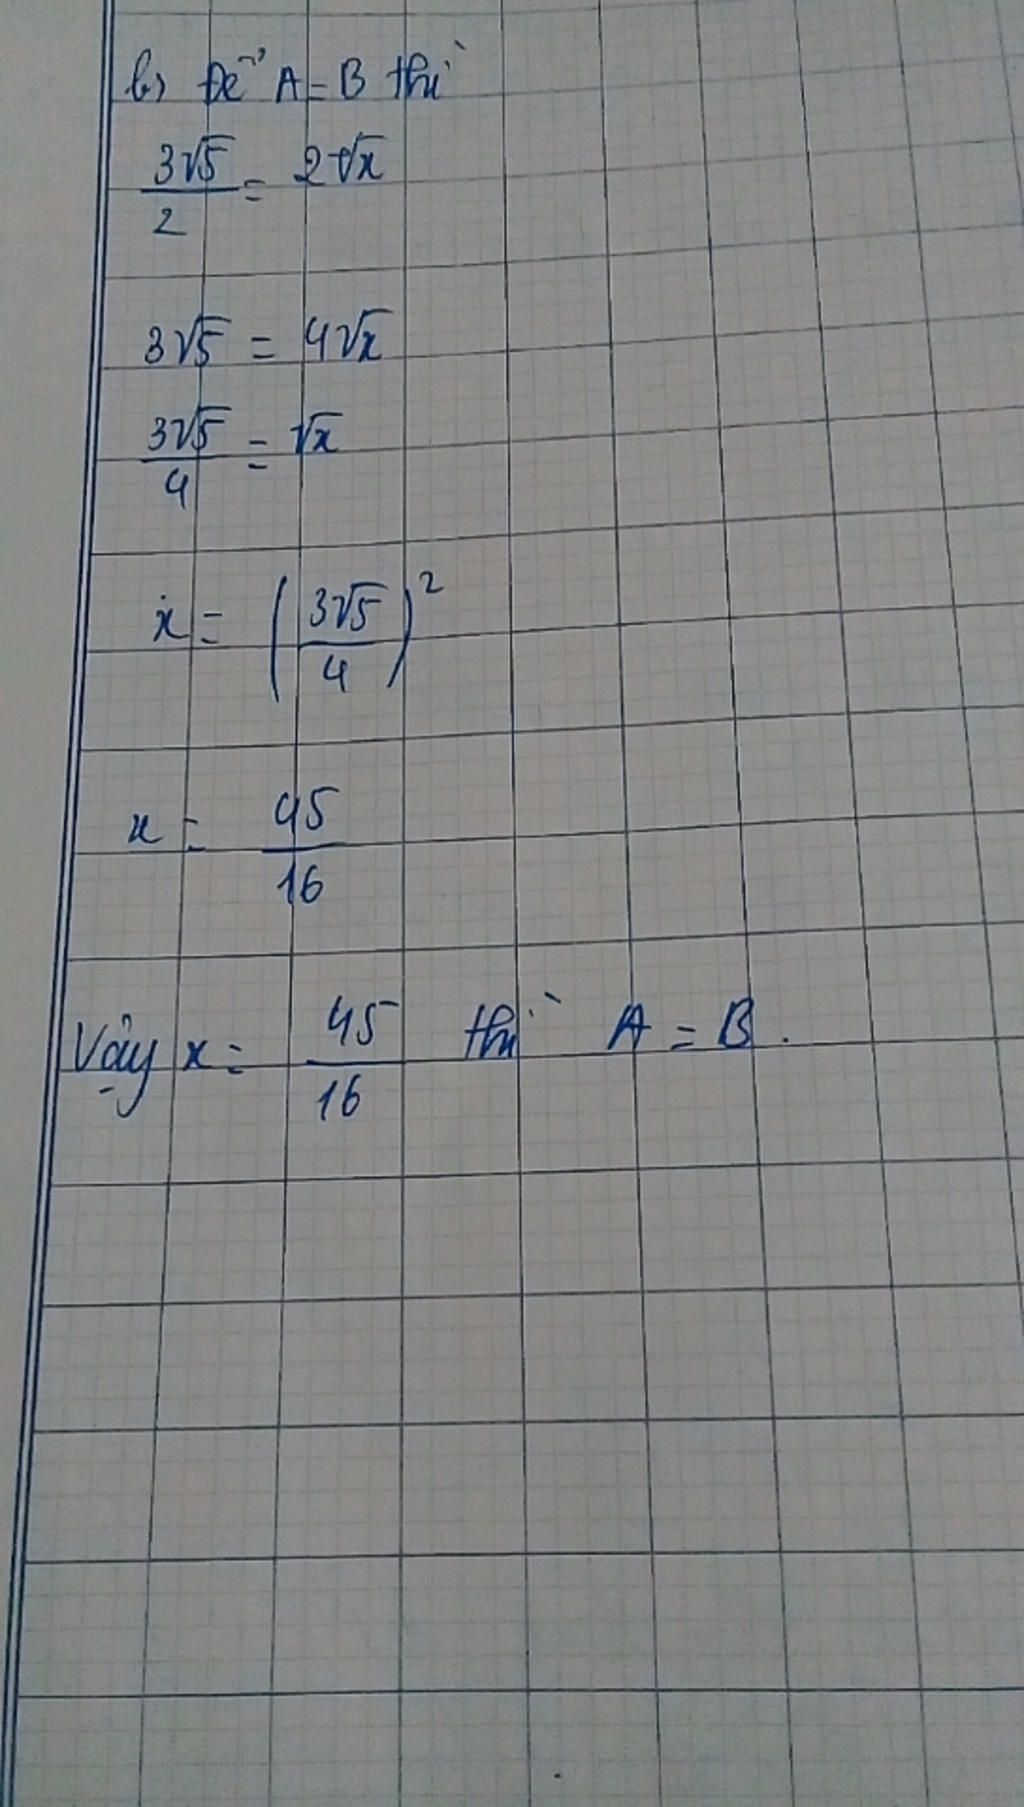 b) Để A = B thì
3√5/2 = 2√x
3√5 = 4√x
3√5/4 = √x
x = (3√5/4)²
x = 45/16
Vậy x = 45/16 thì A = B.